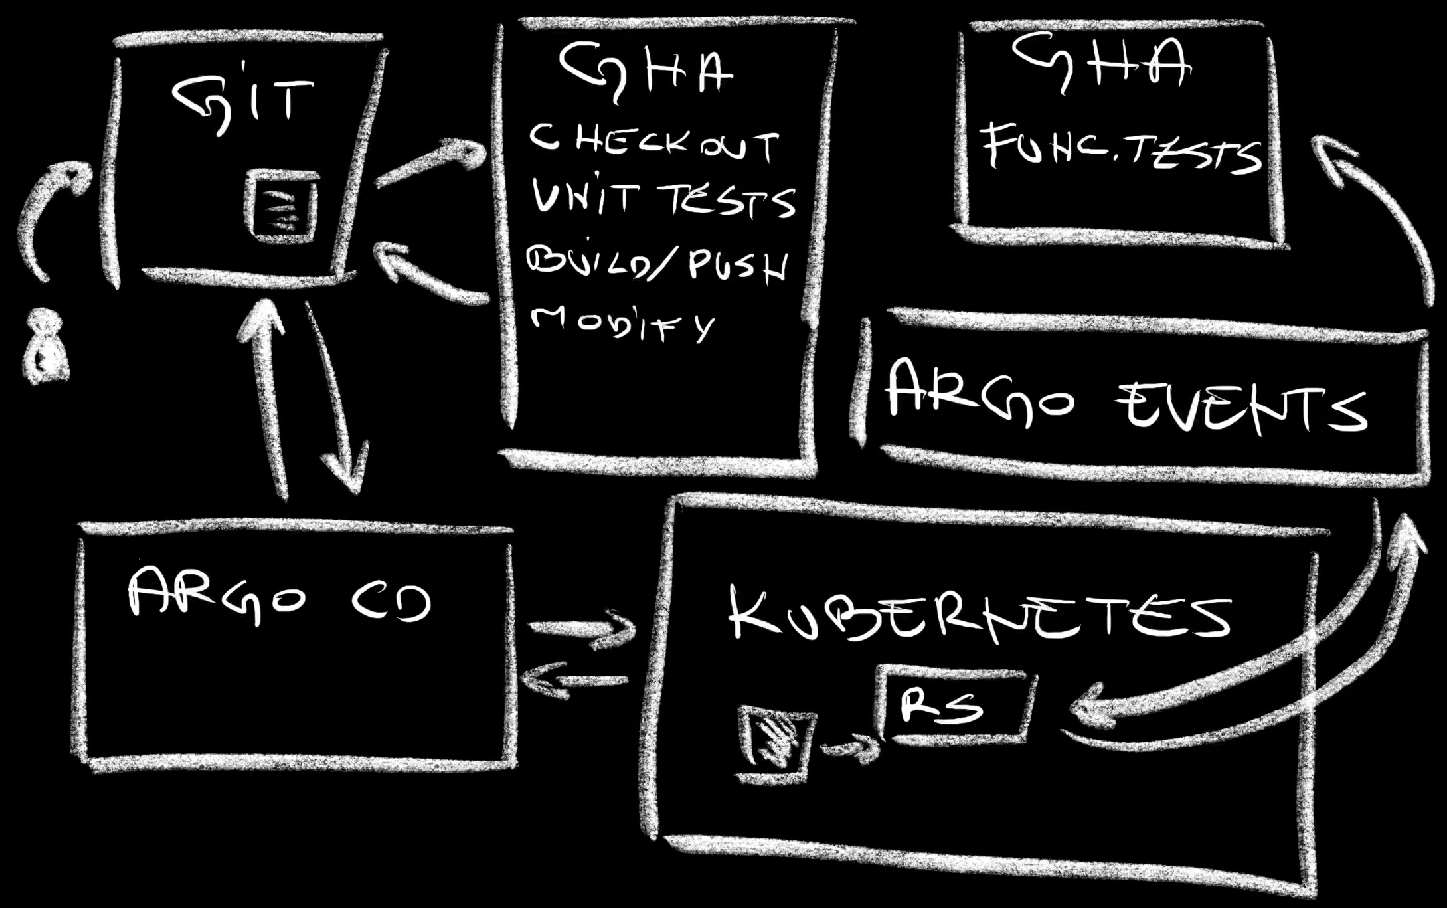 GiT
GHA
CHECKOUT
UNiT TESTS
BUiLD/PUSH
MODiFY
GHA
FUNC. TESTS
ARGO EVENTS
ARGO CD
KUBERNETES
RS